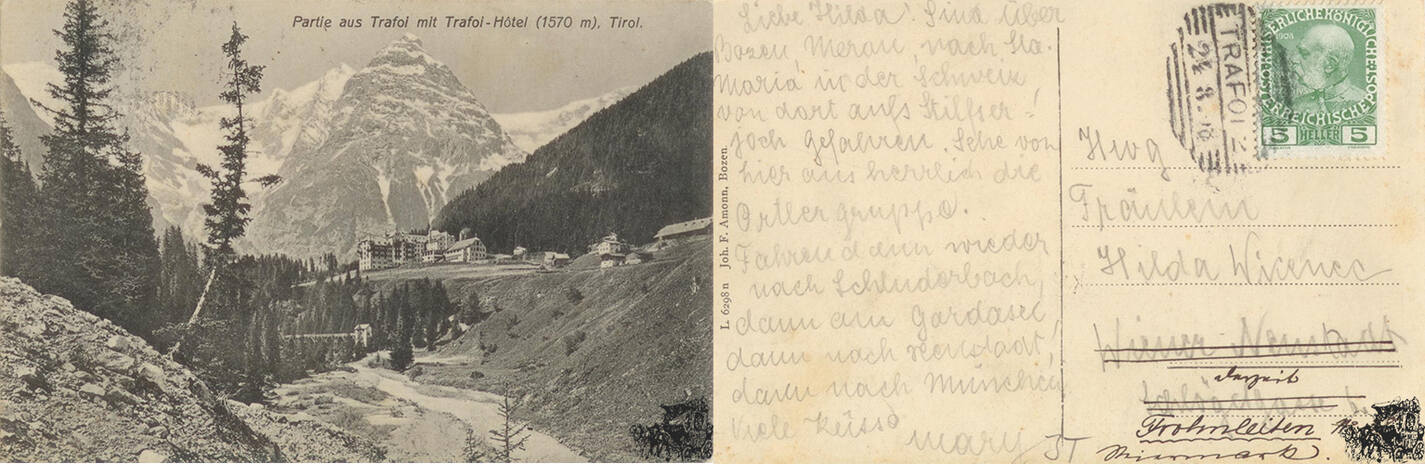 Partie aus Trafoi mit Trafoi-Hôtel (1570 m), Tirol.
Liebe Hilda! Sind über
Bozen, Meran, nach Sta.
Maria in der Schweiz
von dort aufs Stilfser-
joch gefahren. Sehe von
hier aus herrlich die
Ortlergruppe.
Fahren dann wieder
nach Schluderbach,
dann am Gardasee,
dann nach Neustadt,
dann nach München
Viele Küsse
Mary
L. 6298 n Joh. F. Amonn, Bozen.
TRAFOI
24. 8.
1908
KAISERLICHE KÖNIGLICHE
ÖSTERREICHISCHE
5 HELLER 5
Fräulein
Hilda
Wiener-Neustadt
derzeit
Frohnleiten
Steiermark.